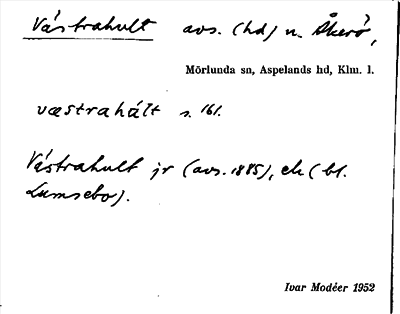 Västrahult avs. (hd) u. Åkerö,
Mörlunda sn, Aspelands hd, Klm. l.
væstrahált s. 161.
Västrahult jr (avs. 1885), ek (bl.
Lumsebo).
Ivar Modéer 1952